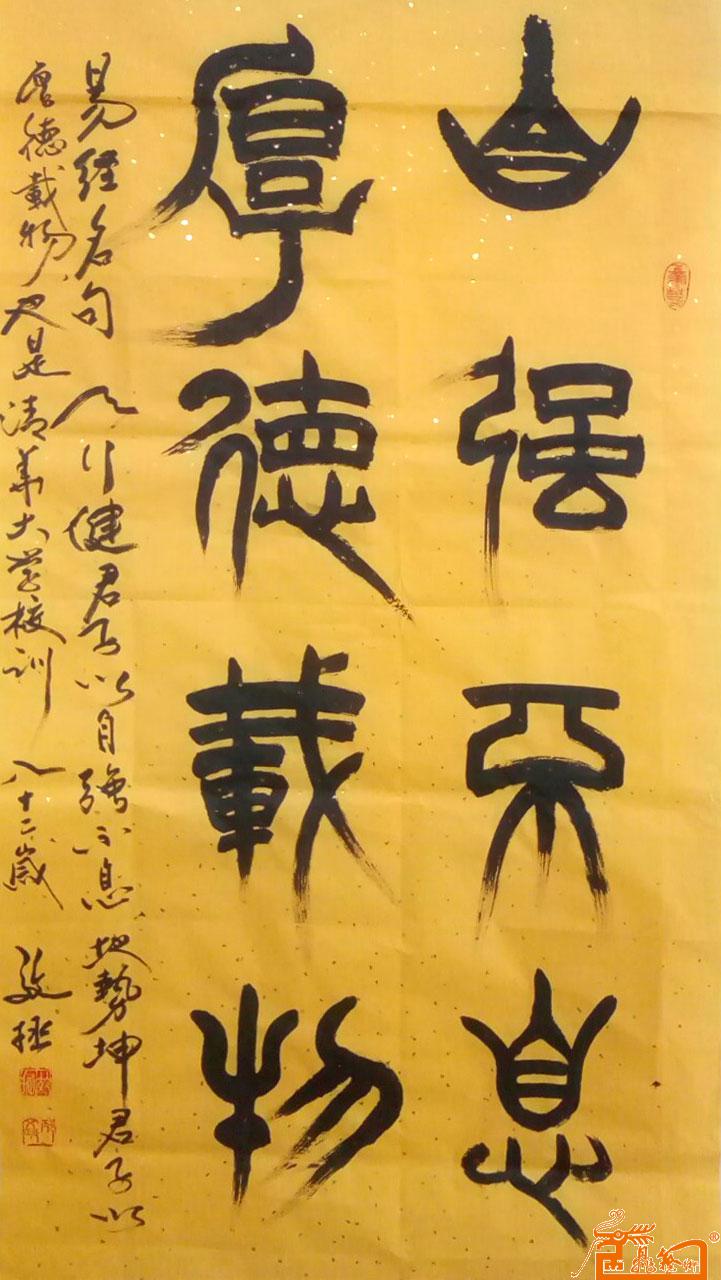 自强不息
厚德载物
易经名句 天行健君子以自强不息 地势坤君子以
厚德载物 也是清华大学校训 八十二岁